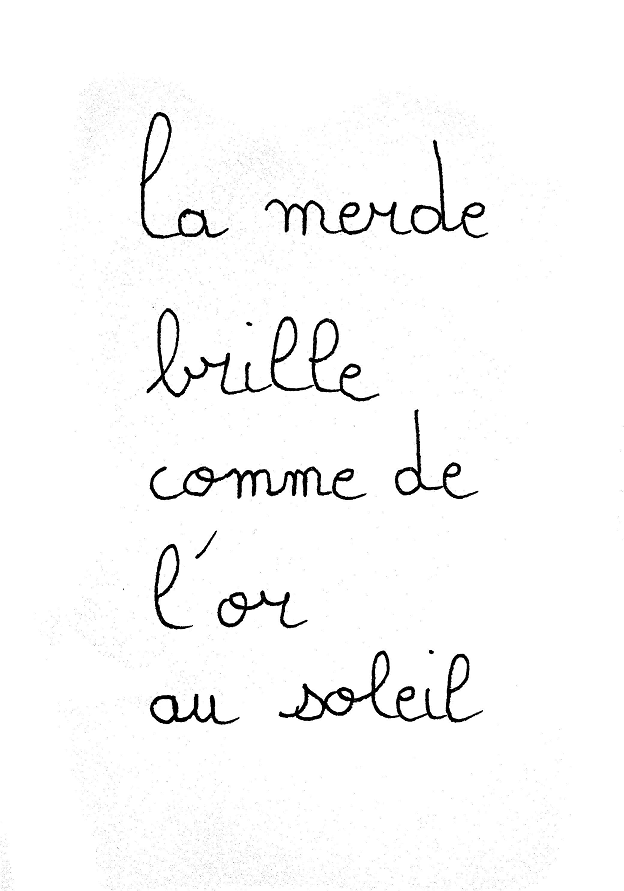 la merde
brille
comme de
l'or
au soleil